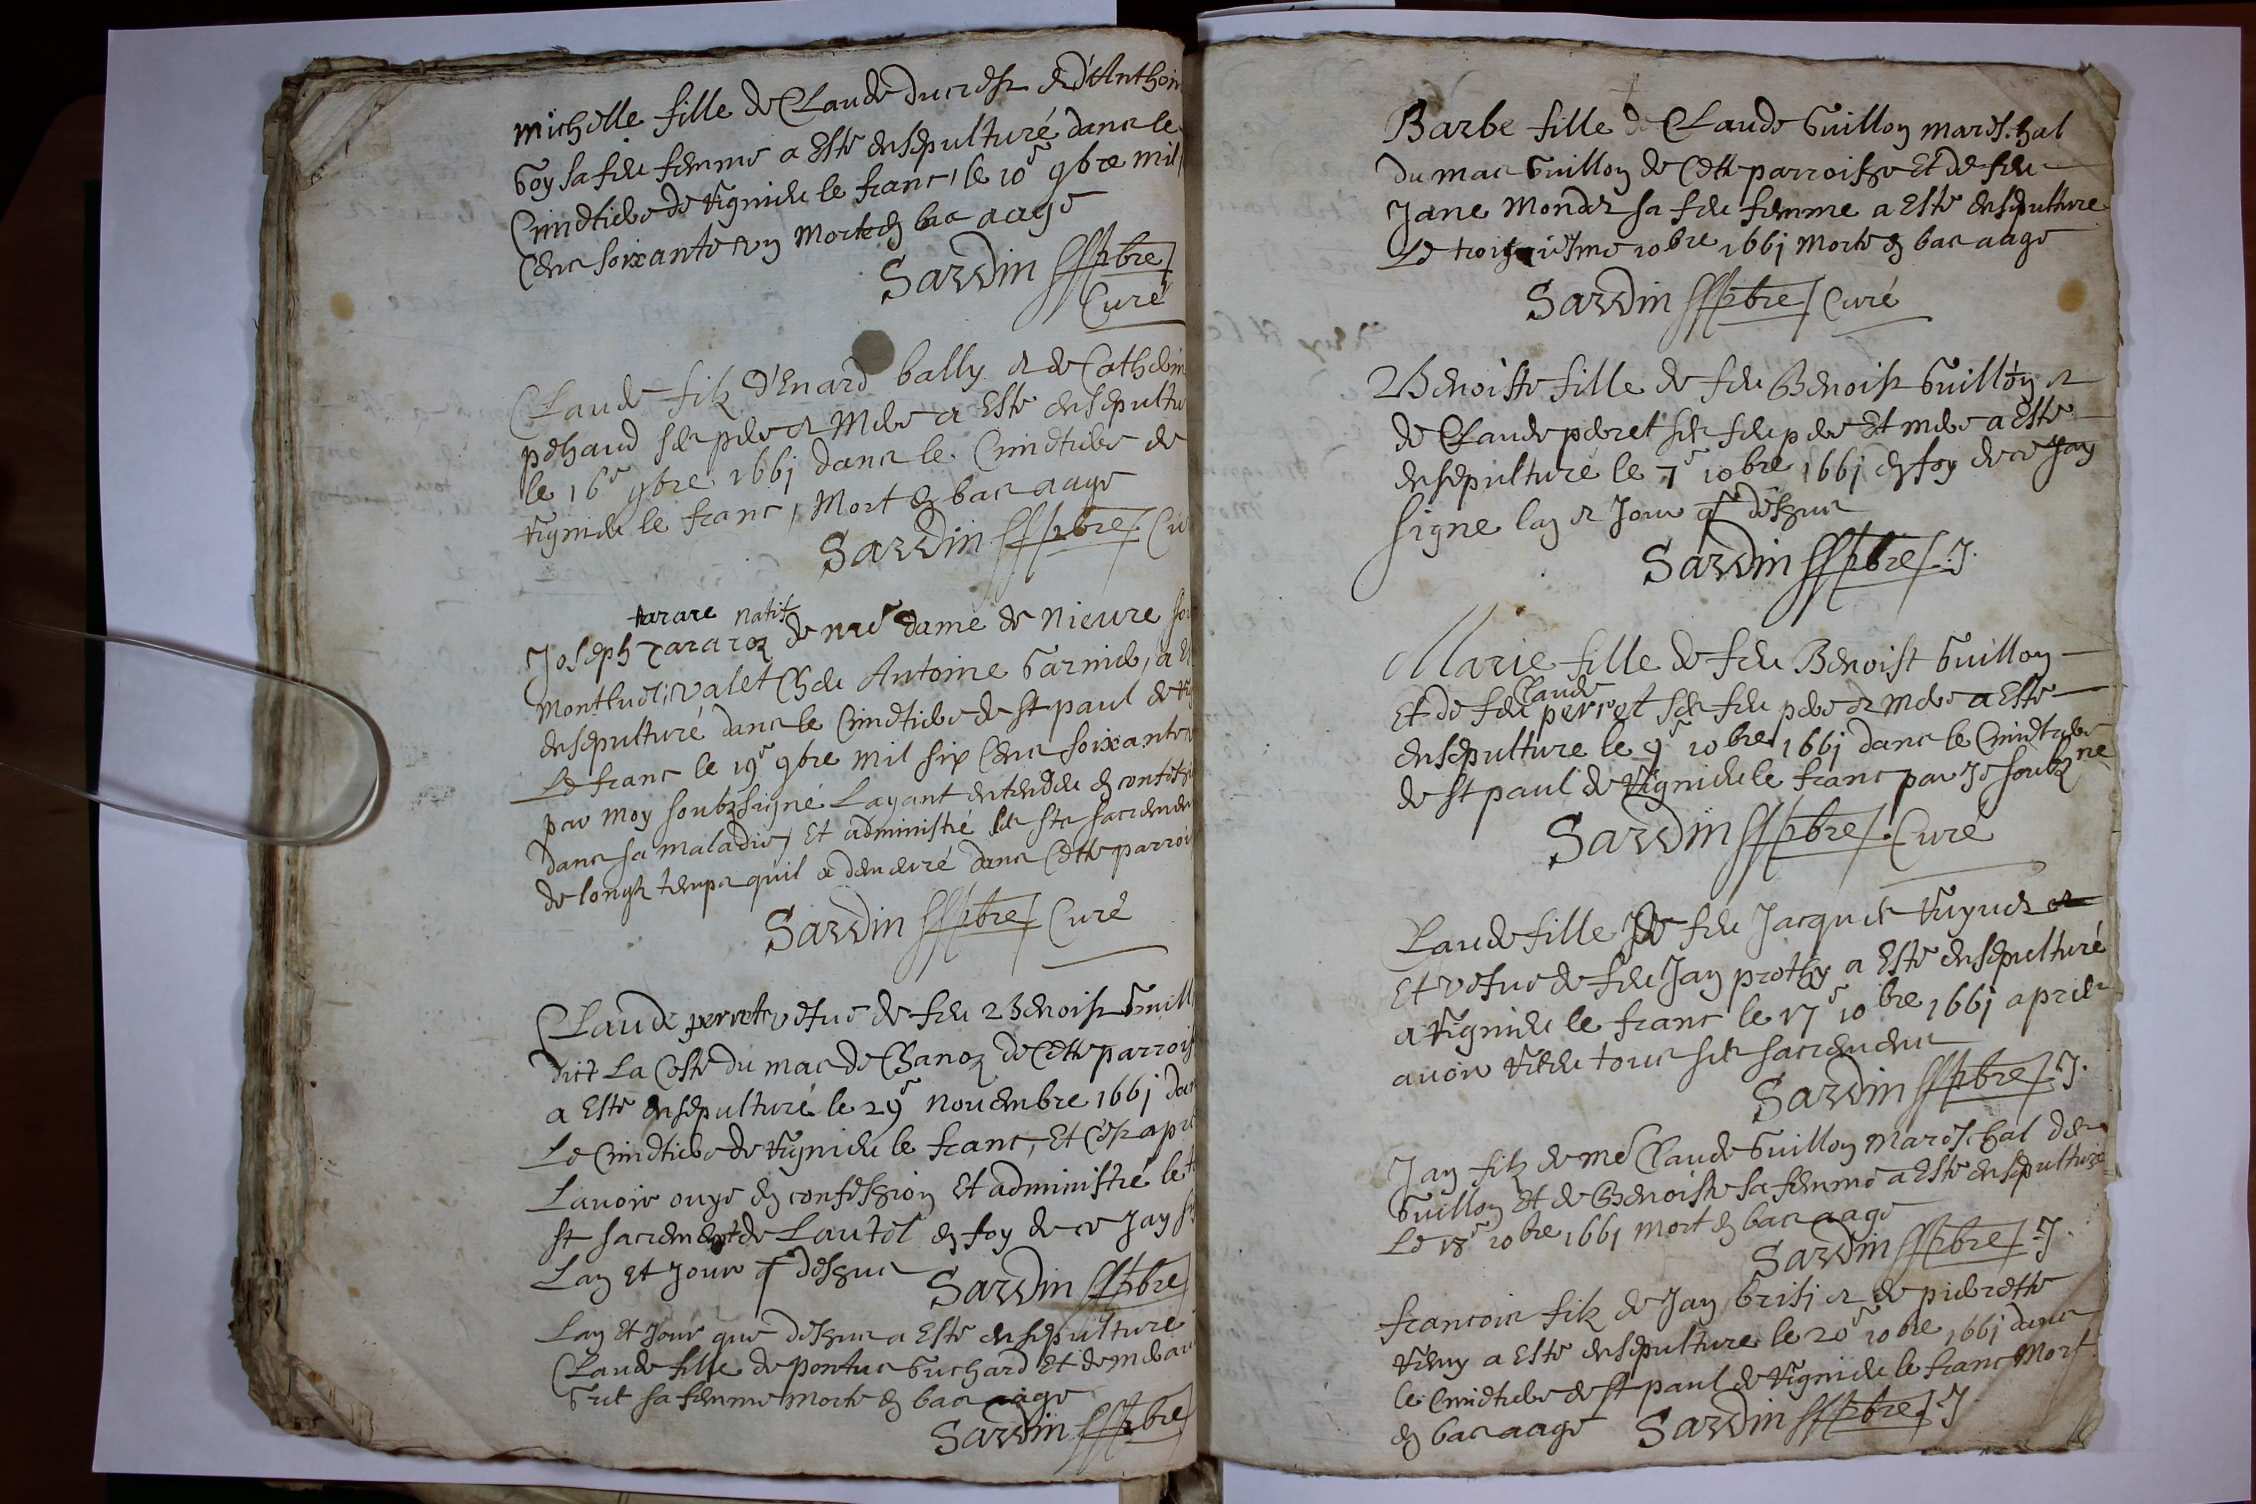 Michelle fille de Claude ducrest et d'Anthoi
Goy sa feu femme a esté ensepulturé dans le
Cimetiere de Rignieu le franc, le 10e 9bre mil
Cens soixante un morte en bas aage
Sardin pbre
Curé
Claude filz d'Enard bally et de Catheri
pehaud ses pere et mere a esté ensepultu
le 16e 9bre 1661 dans le Cimetiere de
Rignieu le franc, Mort en bas aage
Sardin pbre Cu
tarare natif
Joseph de nre dame de Nievre
Montluel valet Cheu Antoine Garnier, a
ensepulturé dans le Cimetiere de st paul de
Le franc le 19e 9bre mil six Cens soixante
par moy soubzsigné Layant entendeu en confessi
dans sa maladie, Et administré les sts sacremen
de longz temps quil a demeuré dans Cette parroi
Sardin pbre Curé
Claude perret vefue de feu Benoist Guill
dict La Coste du mas de Chanoz de Cette parrois
a esté ensepulturé le 29e Nouembre 1661 dan
Le Cimetiere de Rignieu le franc, Et C'est apr
Lauoir ouye en confession Et administré le
st sacrement de Lautel en foy de ce Jay
Lan Et Jour q dessus Sardin pbre
Lan Et Jour que dessus a esté ensepulture
Claude fille de pontus Guichard Et de
sa femme morte en bas aage
Sardin pbre
Barbe fille de Claude Guillon mareschal
du mas Guillon de Cette parroisse Et de feu
Jane Monder sa feu femme a esté ensepulture
Le troisiesme 10bre 1661 Morte en bas aage
Sardin pbre Curé
Benoiste fille de feu Benoist Guillon et
de Claude pieret ses feu pere Et mere a esté
ensepulturé le 7e 10bre 1661 en foy de ce Jay
signe lan et Jour q dessus
Sardin pbre
Marie fille de feu Benoist Guillon
Claude
Et de feu perret ses feu pere et mere a esté
ensepulture le 9e 10bre 1661 dans le Cimetiere
de st paul de Rignieu le franc par Je soubzne
Sardin pbre Curé
Claude fille de feu Jacques
Et vefue de feu Jan prothy a esté ensepulturé
a Rignieu le franc le 17e 10bre 1661 apres
auoir receu tous ses sacremens
Sardin pbre
Jan filz de me Claude Guillon Mareschal des
Guillon Et de Benoiste sa femme a esté ensepulture
Le 18e 10bre 1661 mort en bas aage
Sardin pbre
francois filz de Jan brisj et de pierrette
a esté ensepulture le 20e 10bre 1661 dans
le Cimetiere de st paul de Rignieu le franc Mort
en bas aage Sardin pbre